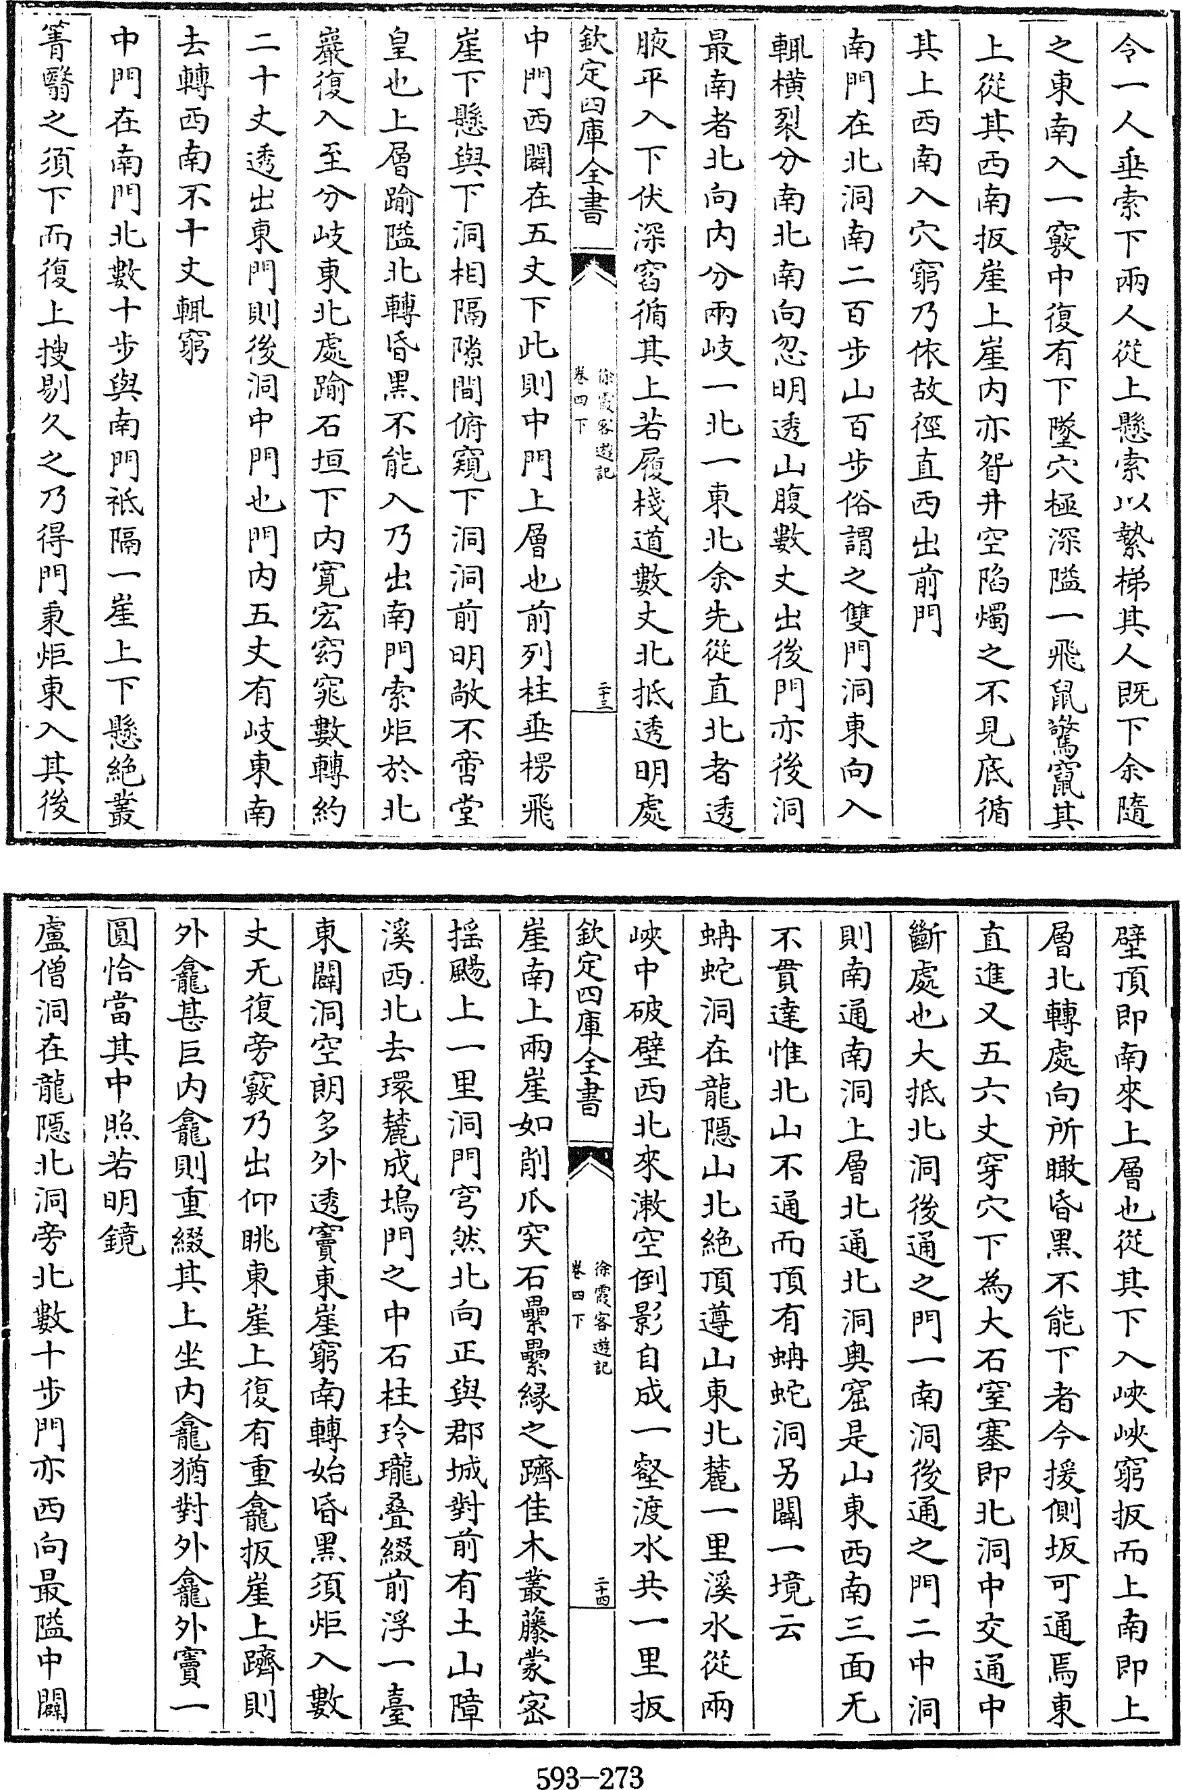 令一人垂索下兩人從上懸索以縶梯其人既下余隨
之東南入一竅中復有下墜穴極深隘一飛鼠驚竄其
上從其西南扳崖上崖内亦眢井空陷燭之不見底循
其上西南入穴窮乃依故徑直西出前門
南門在北洞南二百步山百步俗謂之雙門洞東向入
輒橫裂分南北南向忽明透山腹數丈出後門亦後洞
最南者北向内分兩岐一北一東北余先從直北者透
腋平入下伏深窞循其上若履棧道數丈北抵透明處
欽定四庫全書
徐霞客遊記
卷四下
二十三
中門西闢在五丈下此則中門上層也前列柱垂楞飛
崖下懸與下洞相隔隙間俯窺下洞洞前明敞不啻堂
皇也上層踰隘北轉昏黑不能入乃出南門索炬於北
巖復入至分岐東北處踰石垣下内寛宏窈窕數轉約
二十丈透出東門則後洞中門也門内五丈有岐東南
去轉西南不十丈輒窮
中門在南門北數十步與南門祗隔一崖上下懸絶叢
箐翳之須下而復上搜剔久之乃得門秉炬東入其後
壁頂即南來上層也從其下入峽峽窮扳而上南即上
層北轉處向所瞰昏黑不能下者今援側坂可通焉東
直進又五六丈穿穴下為大石窒塞即北洞中交通中
斷處也大抵北洞後通之門一南洞後通之門二中洞
則南通南洞上層北通北洞奥窟是山東西南三面无
不貫達惟北山不通而頂有蚺蛇洞另闢一境云
蚺蛇洞在龍隱山北絶頂遵山東北麓一里溪水從兩
峽中破壁西北來漱空倒影自成一壑渡水共一里扳
欽定四庫全書
徐霞客遊記
卷四下
二十四
崖南上兩崖如削爪突石纍纍縁之躋佳木叢藤蒙密
揺颺上一里洞門穹然北向正與郡城對前有土山障
溪西北去環麓成塢門之中石柱玲瓏叠綴前浮一臺
東闢洞空朗多外透竇東崖窮南轉始昏黑須炬入數
丈无復旁竅乃出仰眺東崖上復有重龕扳崖上躋則
外龕甚巨内龕則重綴其上坐内龕猶對外龕外竇一
圓恰當其中照若明鏡
盧僧洞在龍隱北洞旁北數十步門亦西向最隘中闢
593-273